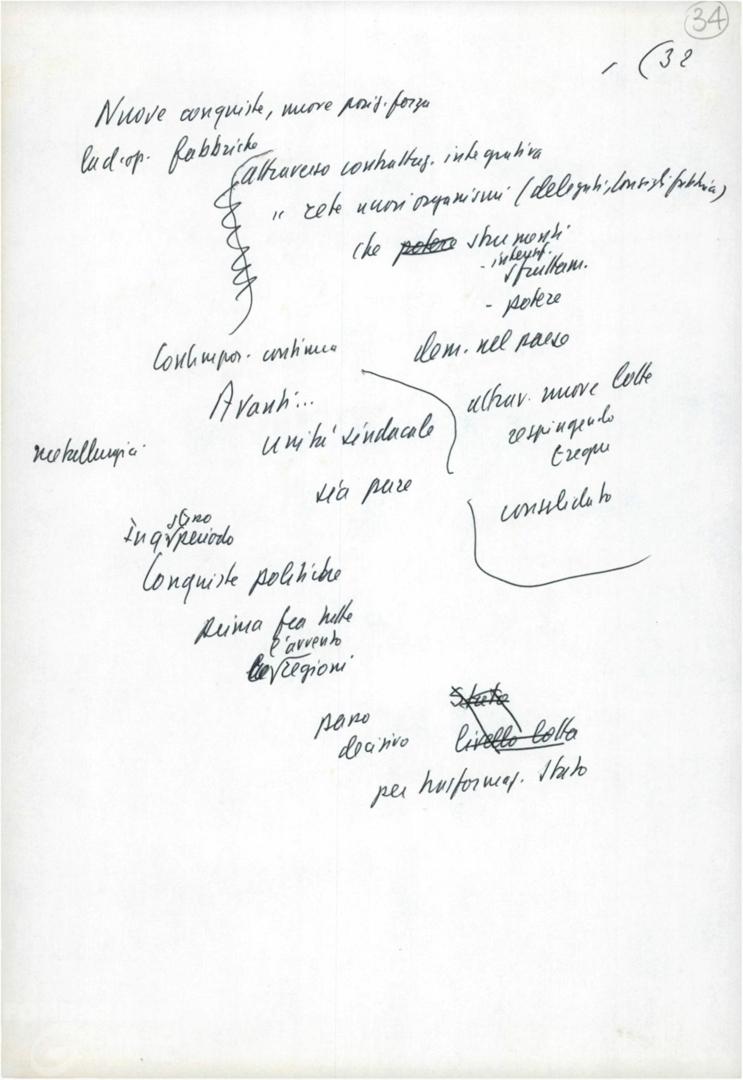 34
(32
Nuove conquiste, nuove posiz. forza
lud. op. fabbriche
attraverso contrattaz. integrativa
" rete nuovi organismi (delegati, consigli fabbrica)
che potere strumenti
- intensif.
sfruttam.
- potere
Contempor. continua
dem. nel paese
Avanti...
attrav. nuove lotte
unità sindacale
respingendo
metallurgici
tregua
sia pure
consolidato
stesso
In q. periodo
Conquiste politiche
prima fra tutte
l'avvento
le regioni
Stato
passo
decisivo
livello lotta
per trasformaz. Stato